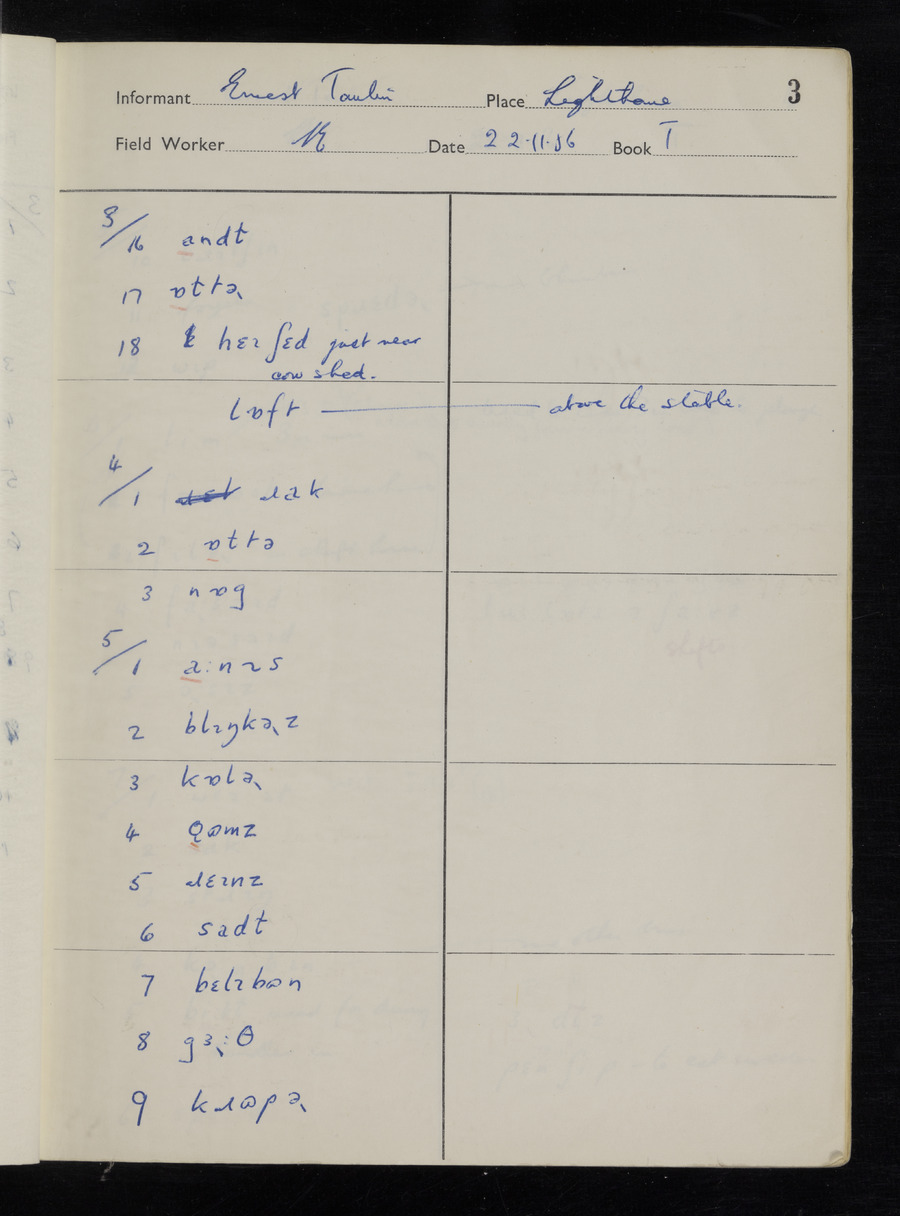 3
Informant Ernest Tomlin Place Lighthorne
Field Worker Date 22.11.56 Book I
3/16 andt
17 ɒttə˞
18 hɛɪ ʃɛd just near
cow shed.
lɒft — above the stable.
4/1 ɹak
2 ɒttə
3 nɒg
5/1 a:nɪs
2 blɪŋkə˞z
3 kɒlə˞
4 ɹɛɪnz
5 sadt
6 bɛlɪban
7 gɜ˞:θ
8 kɹɒpə˞